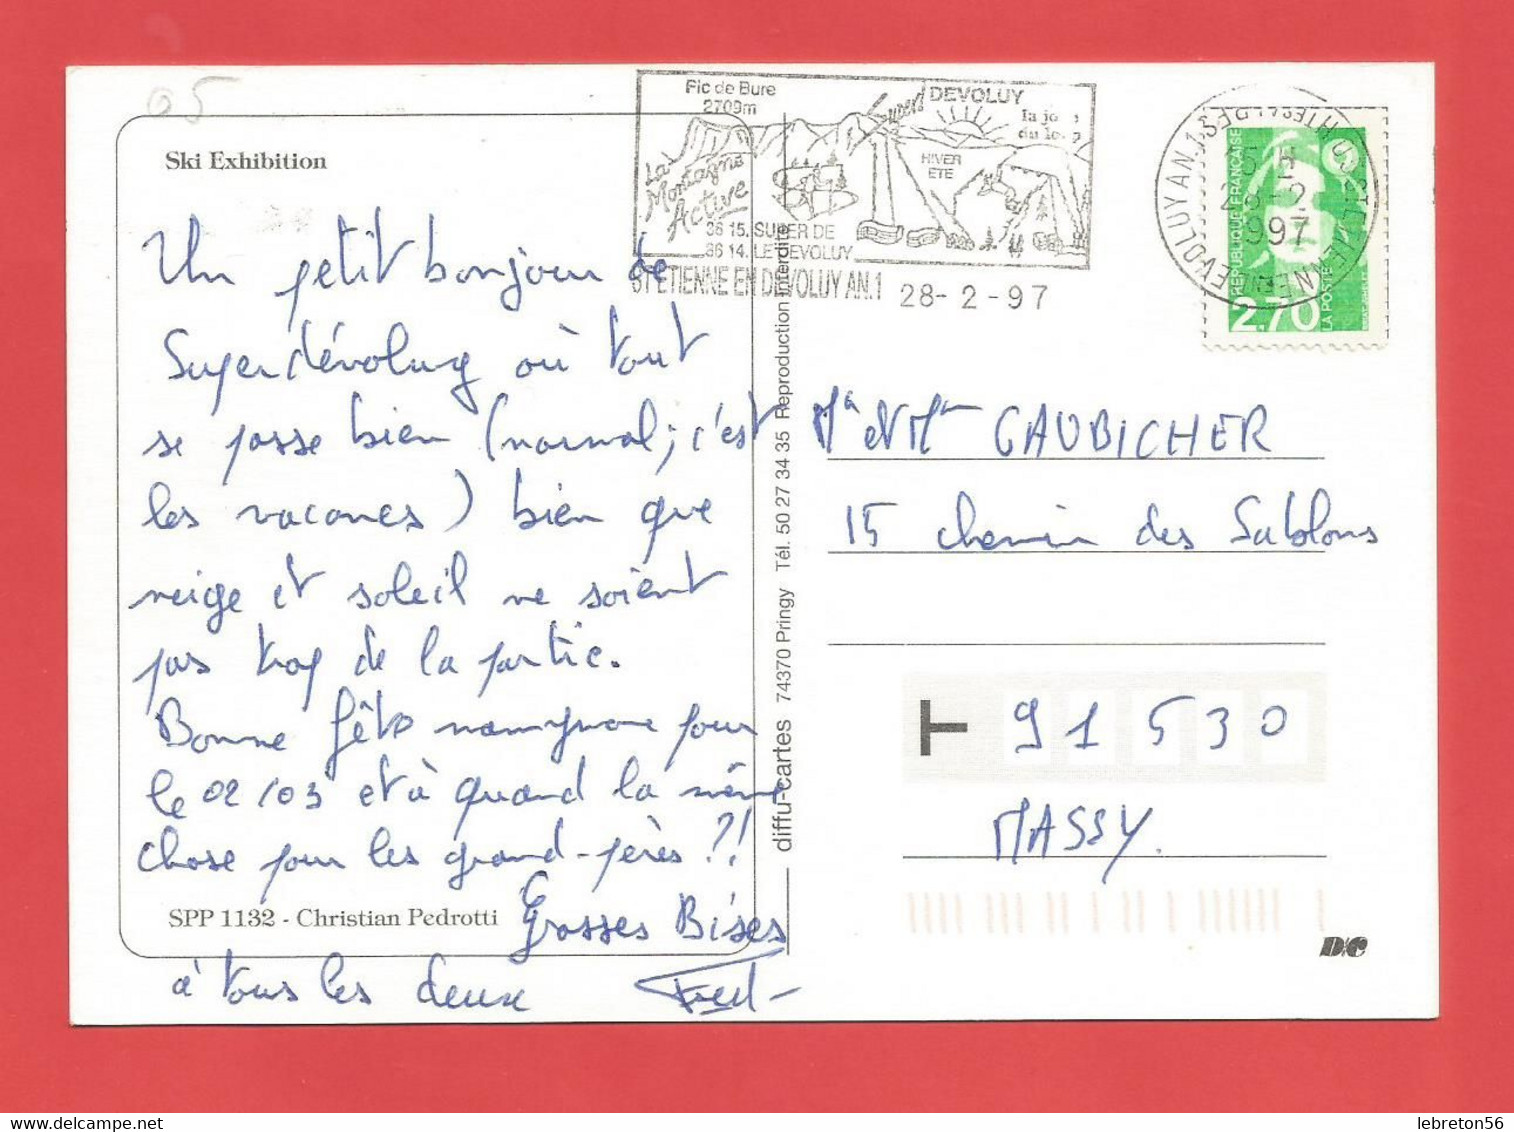 05
Ski Exhibition
Un petit bonjour de
Superdévoluy où tout
se passe bien (normal ; c'est
les vacances) bien que
neige et soleil ne soient
pas trop de la partie.
Bonne fête mamignone pour
le 02/03 et à quand la même
chose pour les grand-pères ?!
SPP 1132 - Christian Pedrotti
Grosses Bises
à tous les deux Fred
Pic de Bure
2709m
Super DEVOLUY
la joie
du loup
HIVER
ETE
La
Montagne
Active
36 15. SUPER DE
36 14. LE DEVOLUY
ST ETIENNE EN DEVOLUY AN.1 28-2-97
diffu-cartes 74370 Pringy Tél. 50 27 34 35 Reproduction interdite
15 H
28-2
1997
REPUBLIQUE FRANÇAISE
LA POSTE
2,70
Mr et Mme GAUBICHER
15 chemin des Sablons
T 91530
MASSY.
D/C
lebreton56